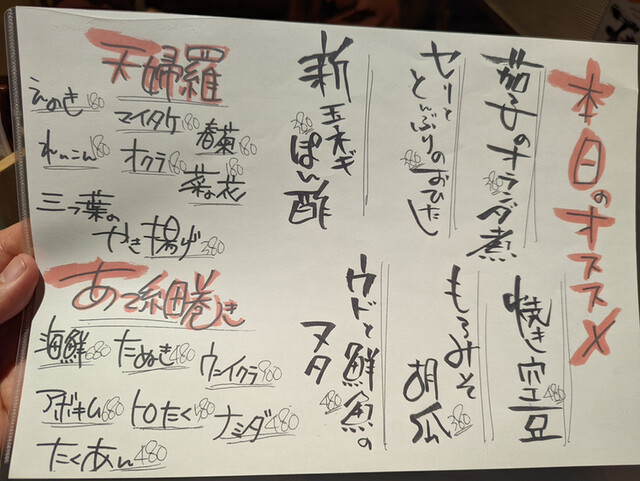 本日のオススメ
茄子のオランダ煮 480
焼き空豆 480
セリととんぶりのおひたし
もろみそ胡瓜 380
新玉ネギぽん酢 380
ウドと鮮魚のヌタ 480
天婦羅
えのき 180
マイタケ 180
春菊 180
れんこん 180
オクラ 180
菜の花 180
三つ葉の
かき揚げ 380
あて細巻き
海鮮 680
たぬき 480
ウニイクラ 900
アボキム 680
トロたく 680
ナミダ 480
たくあん 480